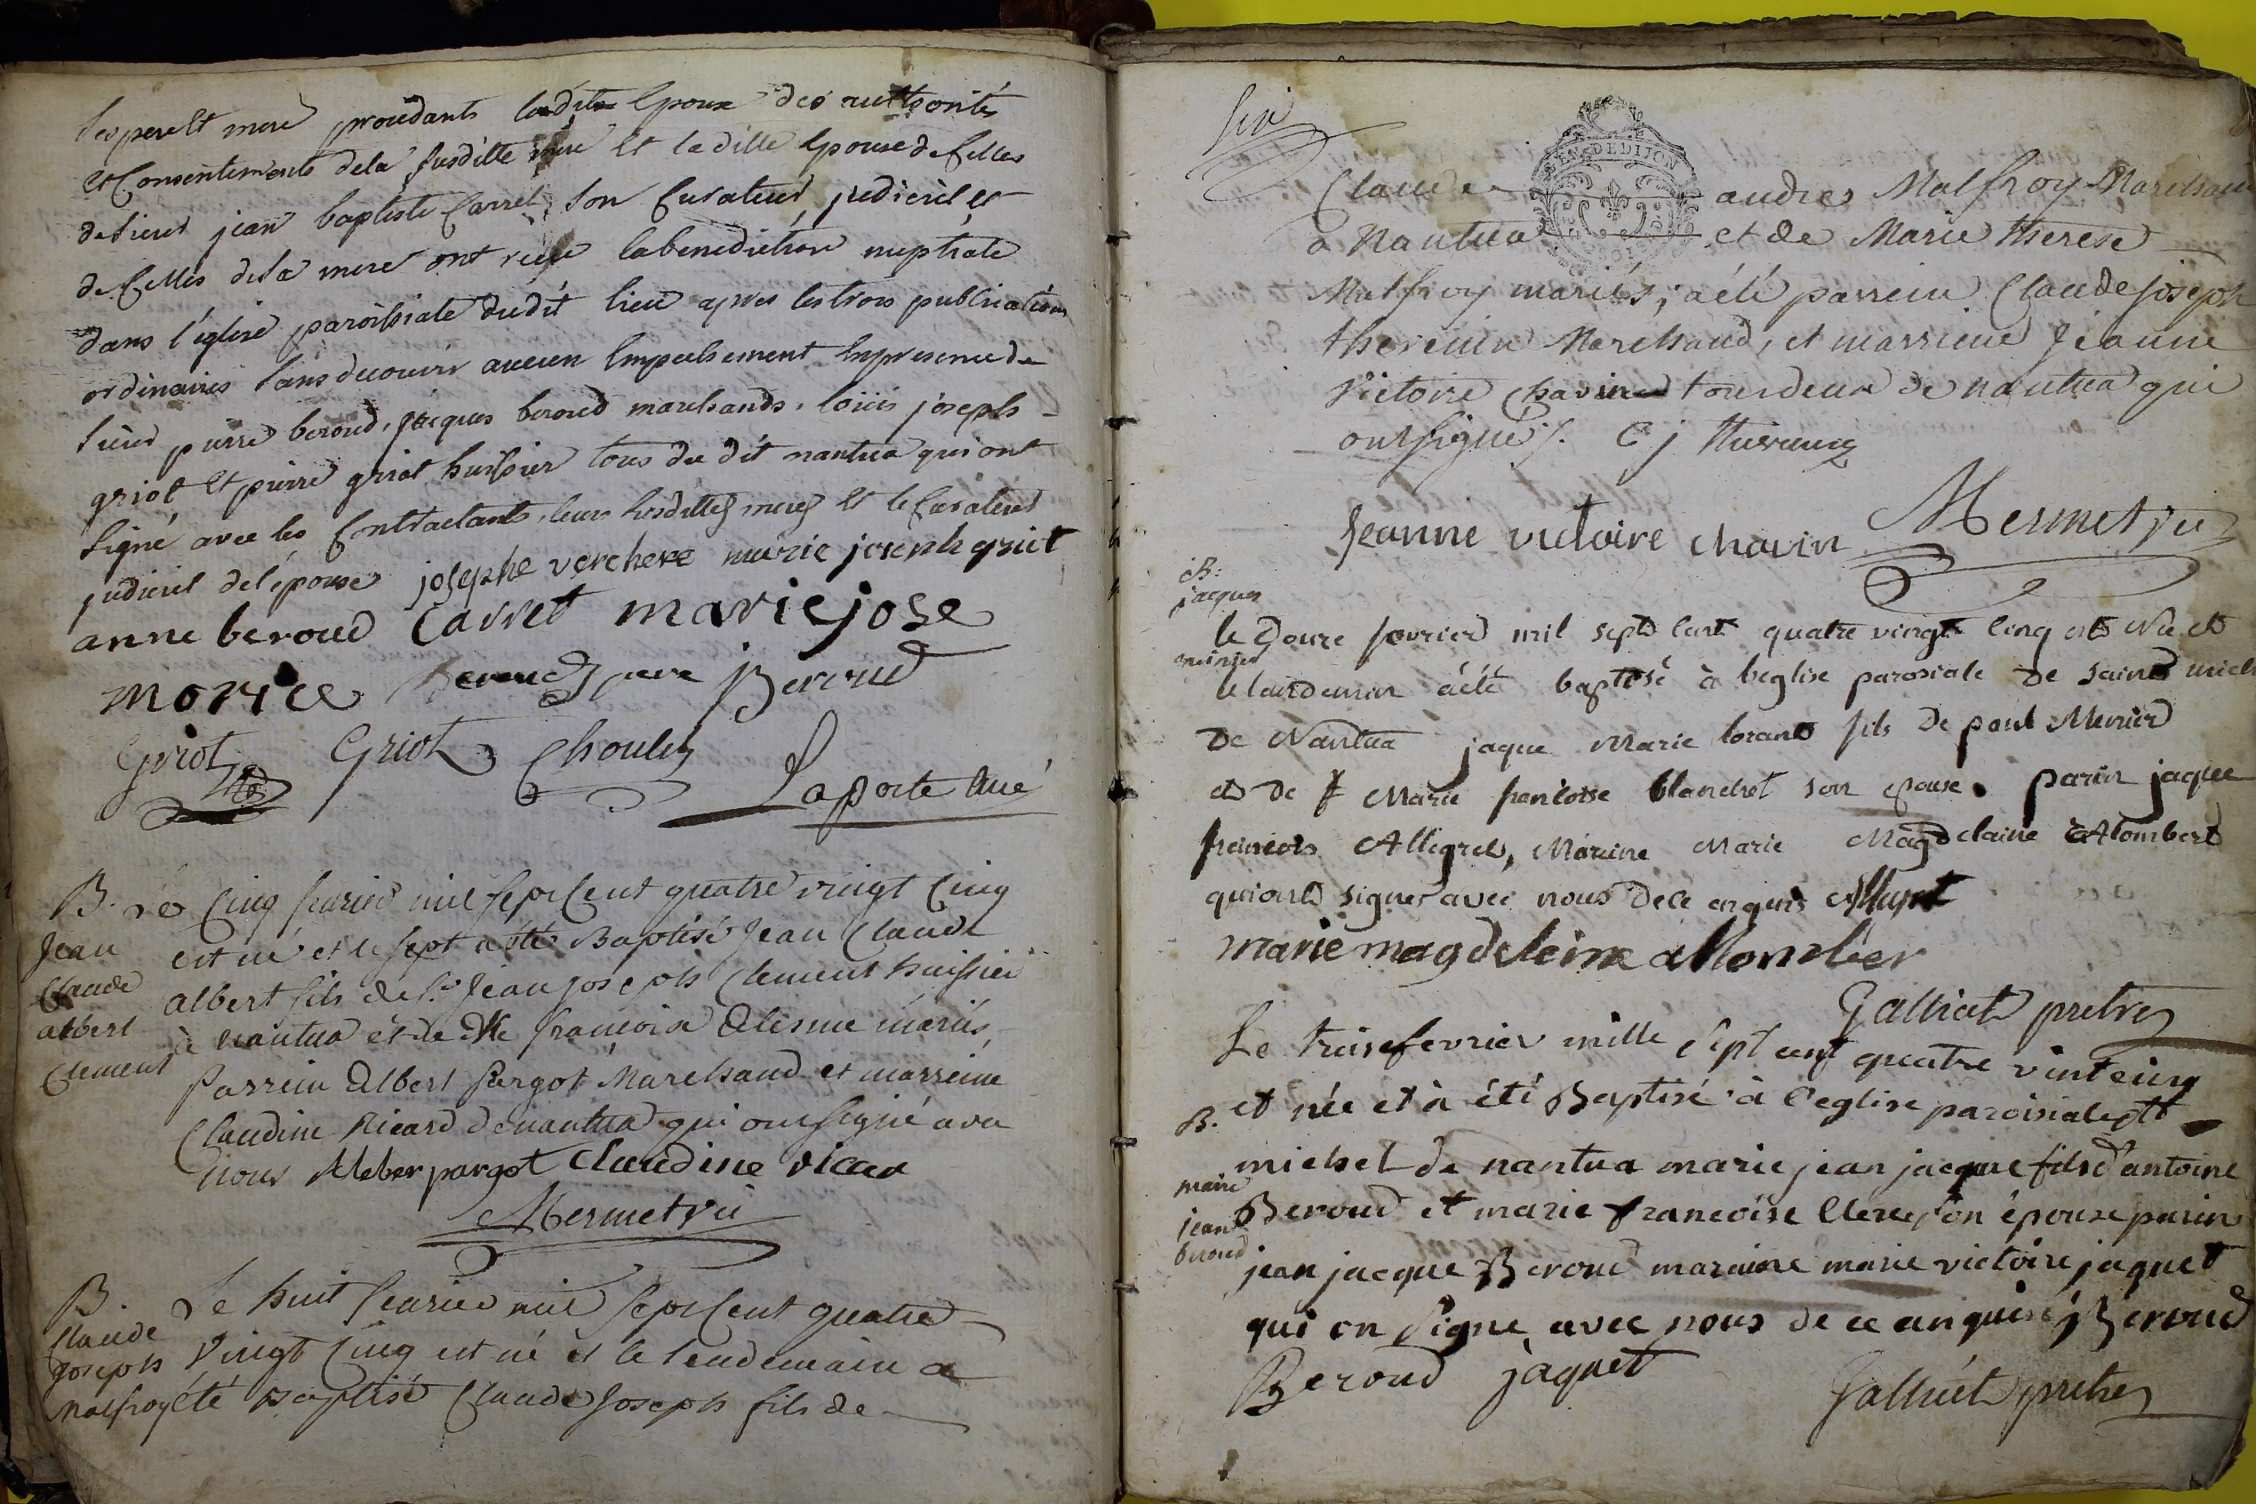 ses pere et mere procedants ledit Epoux des authorités
et Consentements de la susditte mere Et la ditte Epouse de Celles
de sieur jean baptiste Carret son Curateur judiciel et
de Celles de sa mere ont reçu la benediction nuptiale
dans l'église paroissiale dudit lieu apres les trois publications
ordinaires sans decouvrir aucun Empechement En presence de
sieur pierre beroud, jacques beroud marchands, loüis joseph
griot Et pierre griot huissier tous du dit nantua qui ont
signé avec les Contractants, leurs susdittes meres Et le Curateur
judiciel de l'épouse josephe verchere marie joseph griot
anne beroud Carret marie jose
morice Beroud pere J Beroud
Griot Griot Choulet
Laporte Curé
B. Le Cinq fevrier mil sept Cent quatre vingt Cinq
Jean est né et le sept a été Baptisé Jean Claude
Claude albert fils de Sr Jean joseph Clement huissier
albert à Nantua et de Dlle françoise Delesme mariés
Clement Parrein Albert pargot Marchand et marreine
Claudine Ricard de nantua qui ont signé avec
nous Aleber pargot Claudine Vicar
Mermet vic
B. Le huit fevrier mil sept Cent quatre
Claude joseph Vingt Cinq est né et le lendemain a
Malfroy été Baptisé Claude Joseph fils de
six
GEN. DE DIJON
Claude andres Malfroy Marchand
à Nantua et de Marie therese
Malfroy mariés; a été parrein Claude joseph
thevenin Marchand, et marreine Jeanne
Victoire Chavin tous deux de nantua qui
ont signés. C j thevenin
Jeanne victoire chavin Mermet vic
B.
jacques
le Douze fevrier mil sept Cent quatre vingt Cinq est Né et
meunier
le landemain a été baptisé à leglise parosiale de saint michel
de Nantua jaque Marie lorant fils de paul Munier
et de Marie francoise blanchet son epouse. parin jaque
francois Allegret, Marine Marie Magdelaine Alombert
qui ont signer avec nous de ce enquis
marie magdeleine allonber
Galliat pretre
Le treise fevrier mille sept cent quatre vint cinq
B. et née et à été Baptisé à l'eglise paroisiale st
michel de nantua marie jean jacque fils d'antoine
marie
Beroud et marie francoise Clerc son épouse parin
jean
beroud
jean jacque Beroud maraine marie victoire jaquet
qui on signe avec nous de ce anquis j Beroud
Beroud jaquet
Galliat pretre